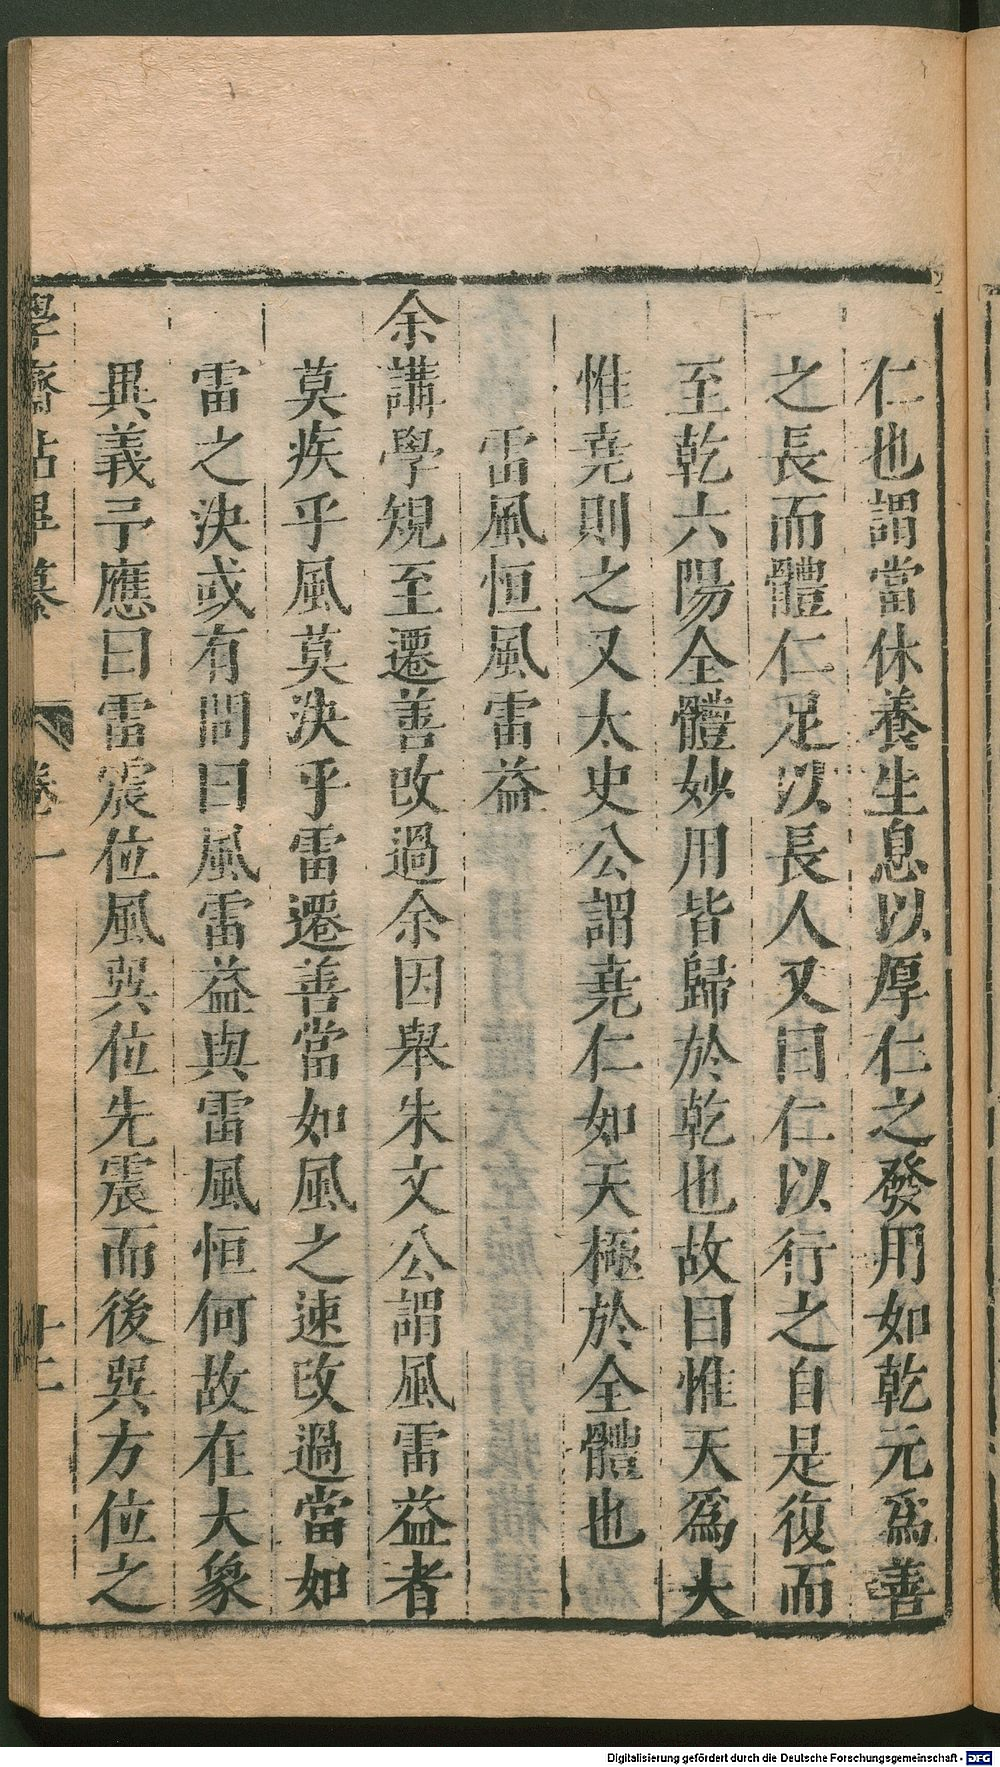 仁也謂當休養生息以厚仁之發用如乾元爲善
之長而體仁足以長人又曰仁以行之自是復而
至乾六陽全體妙用皆歸於乾也故曰惟天爲大
惟堯則之又太史公謂堯仁如天極於全體也
雷風恒風雷益
余講學規至遷善改過余因舉朱文公謂風雷益者
莫疾乎風莫決乎雷遷善當如風之速改過當如
雷之決或有問曰風雷益與雷風恒何故在大象
異義予應曰雷震位風巽位先震而後巽方位之
學齋佔畢纂 卷一 十二
Digitalisierung gefördert durch die Deutsche Forschungsgemeinschaft - DFG